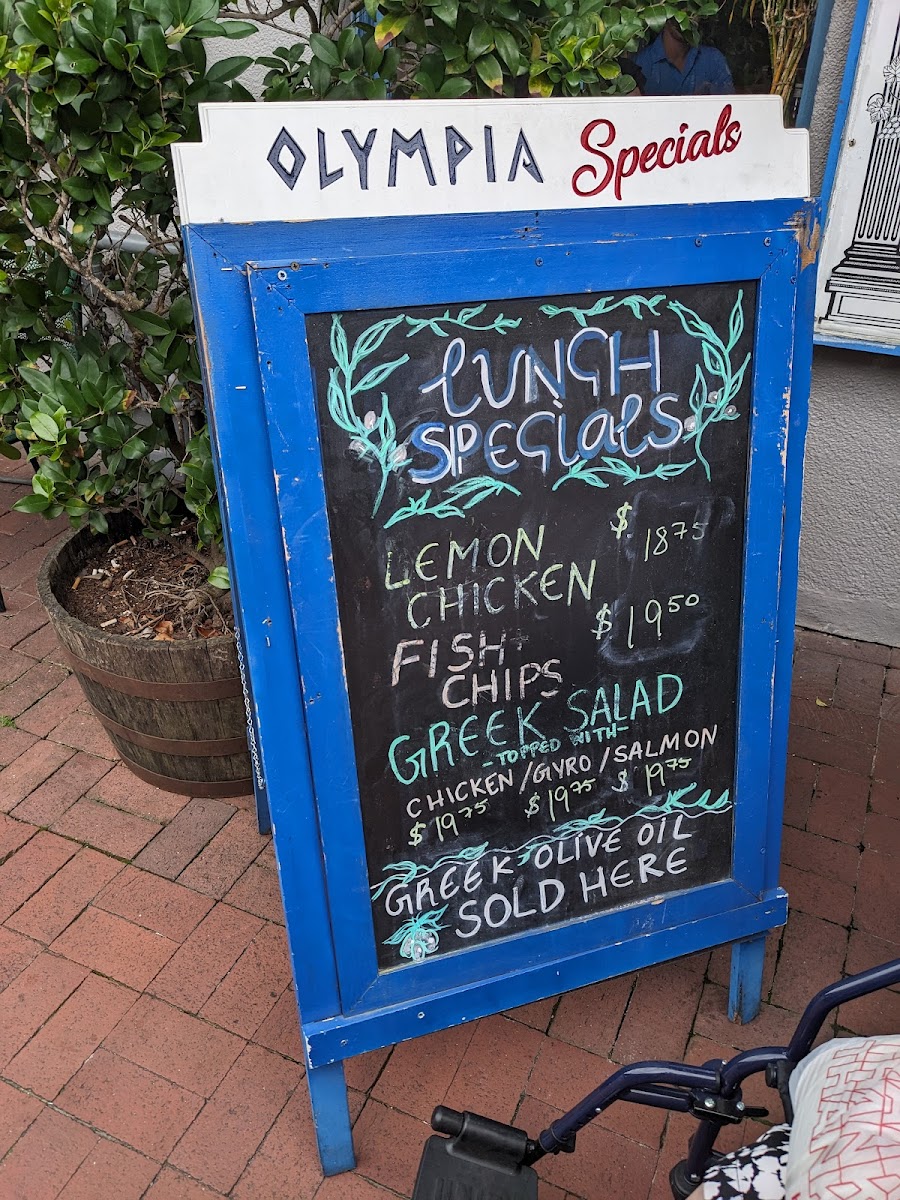 OLYMPIA Specials
LUNCH
SPECIALS
LEMON $ 18 75
CHICKEN
FISH + $ 19 50
CHIPS
GREEK SALAD
-TOPPED WITH-
CHICKEN/GYRO/SALMON
$ 19 75 $ 19 75 $ 19 75
GREEK OLIVE OIL
SOLD HERE